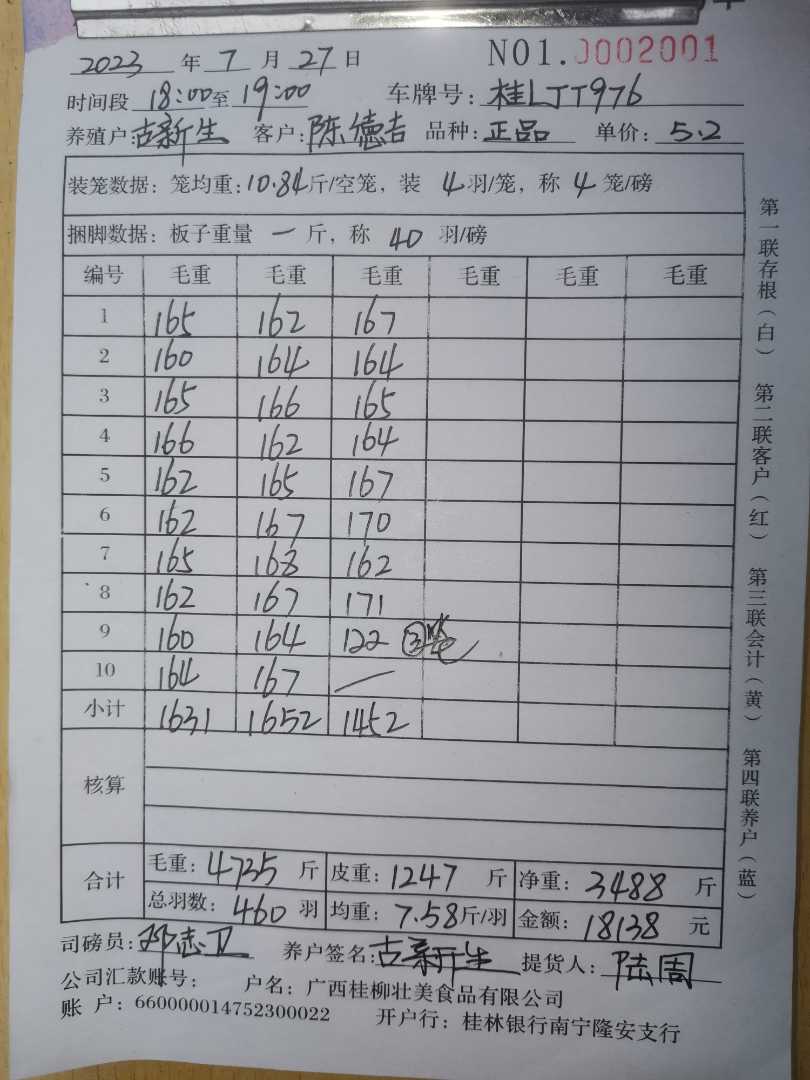 2023 年 7 月 27 日 NO1.0002001
时间段 18:00至19:00 车牌号: 桂LJT976
养殖户:古新生 客户:陈德吉 品种:正品 单价: 5.2
装笼数据: 笼均重:10.84斤/空笼, 装 4 羽/笼, 称 4 笼/磅
捆脚数据: 板子重量 一 斤, 称 40 羽/磅
编号 毛重 毛重 毛重 毛重 毛重 毛重
1 165 162 167
2 160 164 164
3 165 166 165
4 166 162 164
5 162 165 167
6 162 167 170
7 165 168 162
8 162 167 171
9 160 164 122 ③笼
10 164 167 —
小计 1631 1652 1452
核算
合计 毛重: 4735 斤 皮重: 1247 斤 净重: 3488 斤
总羽数: 460 羽 均重: 7.58斤/羽 金额: 18138 元
司磅员: 邓志卫 养户签名:古新生 提货人: 陆周
公司汇款账号: 户名: 广西桂柳壮美食品有限公司
账 户: 660000014752300022 开户行: 桂林银行南宁隆安支行
第一联存根(白) 第二联客户(红) 第三联会计(黄) 第四联养户(蓝)